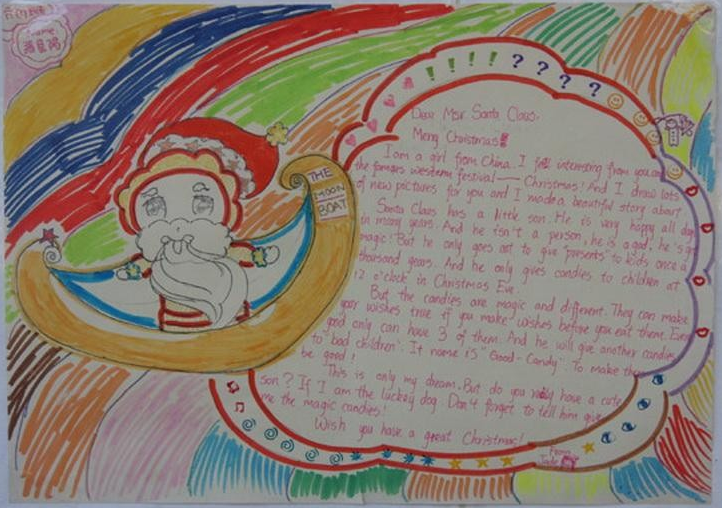 Name
THE
MOON
BOAT
! ! ! ! ? ? ? ?
Dear Msr. Santa Claus.
Merry Christmas!
I am a girl from China. I fell interesting from you and
the famous western festival — Christmas! And I draw lots
of new pictures for you and I made a beautiful story about
Santa Claus has a little son. He is very happy all day
in many years. And he isn't a person, he is a god, he's got
magic! But he only goes art to give "presents" to kids once a
thousand years. And he only gives candies to children at
12 o'clock in Christmas Eve.
But the candies are magic and different. They can make
your wishes true if you make wishes before you eat them. Every
good only can have 3 of them. And he will give another candies
to "bad children". It name is "Good-Candy". To make them
be good!
This is only my dream. But do you really have a cute
son? If I am the luckey dog. Don't forget to tell him give
me the magic candies!
Wish you have a great Christmas!
From